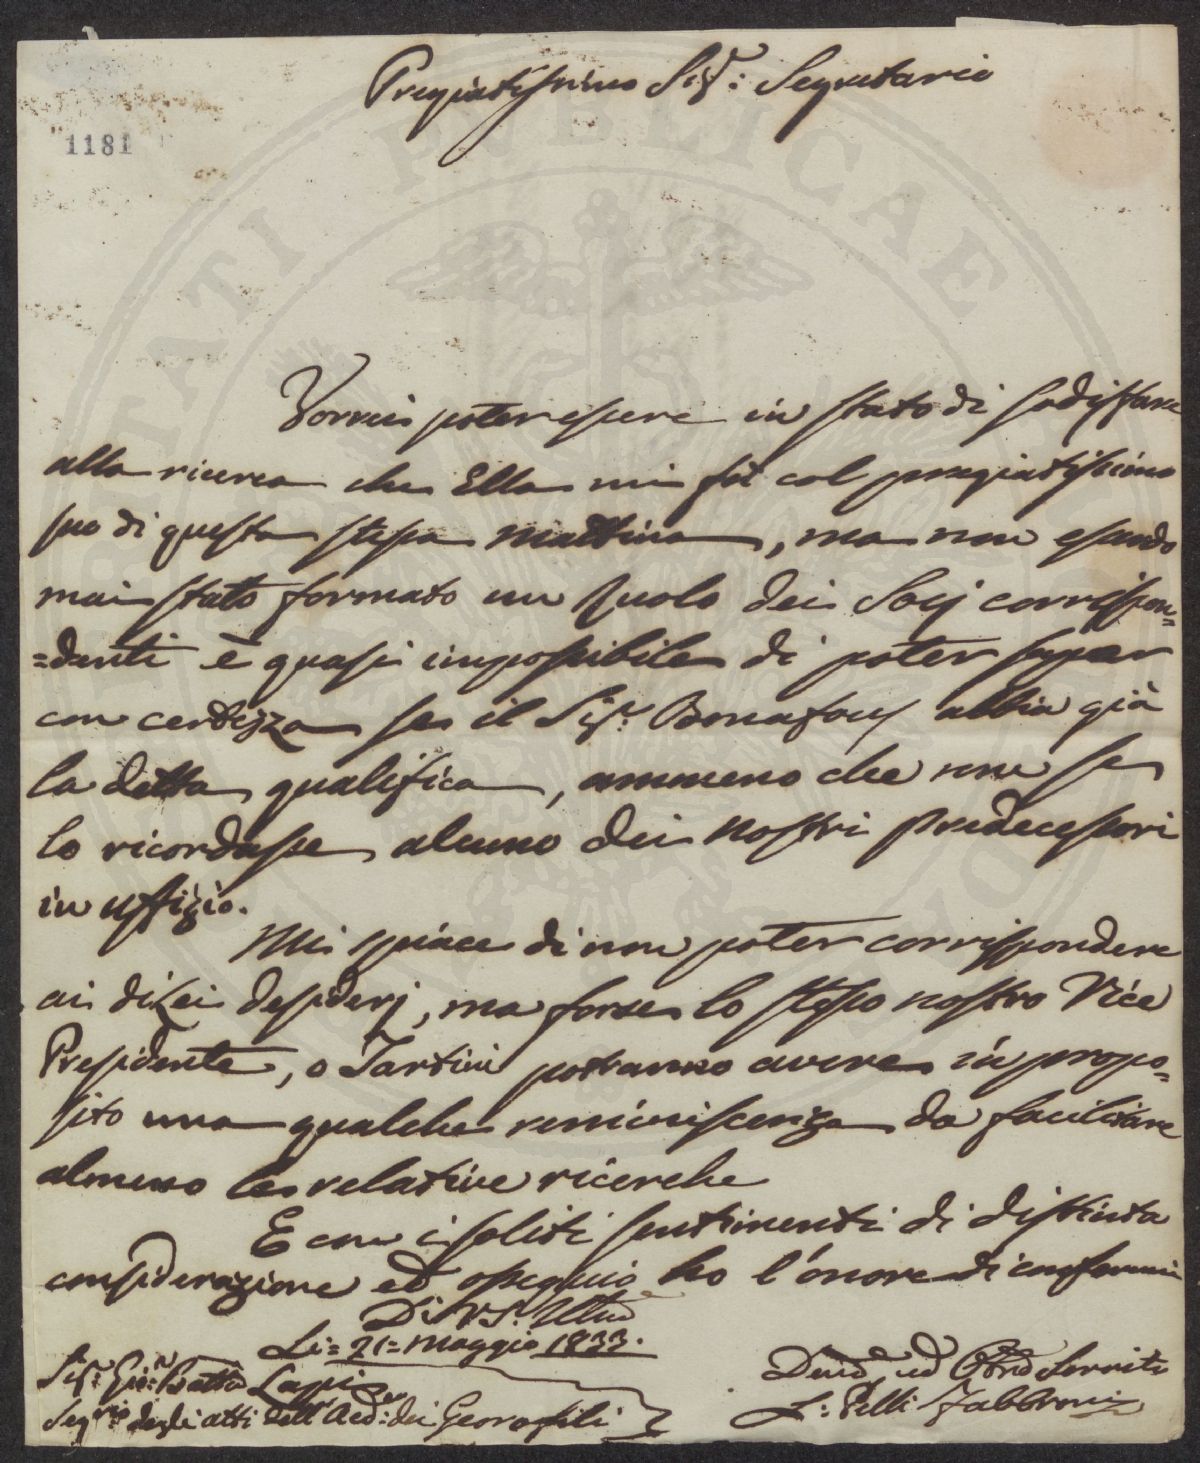 Pregiatissimo Sig.r: Segretario
1181
Vorrei poter essere in stato di sodisfare
alla ricerca che Ella mi fà col pregiatissimo
suo di questa stessa mattina, ma non essendo
mai stato formato un Ruolo dei Socj corrispon=
=denti è quasi impossibile di poter saper
con certezza se il Sig.r Bonafous abbia già
la detta qualifica, ammeno che non se
lo ricordasse alcuno dei nostri predecessori
in uffizio.
Mi spiace di non poter corrispondere
ai di Lei desiderj, ma forse lo stesso nostro Vice
Presidente, o Tartini potranno avere in propo=
sito una qualche reminiscenza da facilitare
almeno le relative ricerche
E con i soliti sentimenti di distinta
considerazione ed ossequio ho l'onore di confermarmi
Di VS. Illma
Li = 21 = Maggio 1833.
Sig.r Gio: Batta Lapi
Seg.rio degli atti dell'Acc: dei Georgofili
Devo ed Obbmo Servite
L: Pelli Fabbroni
PUBLICAE